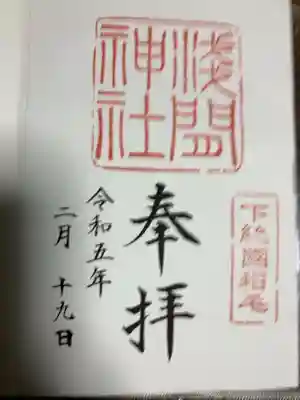 浅間
神社
下総國稲毛
奉拝
令和五年
二月十九日